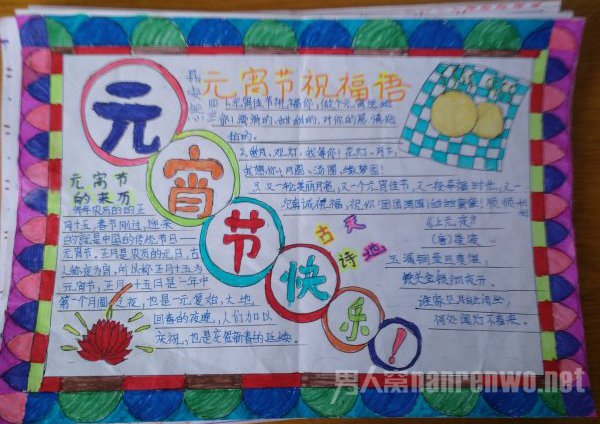 元宵节祝福语
元
宵
节
快
乐
!
元宵节
的来历
每年农历的的正
月十五,春节刚过,迎来
的就是中国的传统节日——
元宵节。正月是农历的元月,古
人称夜为宵,所以称正月十五为
元宵节。正月十五日是一年中
第一个月圆之夜,也是一元复始,大地
回春的夜晚,人们加以
庆祝,也是庆贺新春的延续。
1.元宵佳节祝福你,做个元宵送给
你!滑滑的,甜甜的,对你的感情
粘的。
2.微月,观灯,我等你!花灯,月下,
我想你!月圆,汤圆,缘梦圆!
3.又一轮美丽月亮,又一个元宵佳节,又一段幸福时光,又一
真诚祝福,祝你团团圆圆
古
灵
诗
地
《上元夜》
(唐)崔液
玉漏铜壶且莫催,
铁关金锁彻夜开。
谁家见月能闲坐,
何处闻灯不看来。
男人窝nanrenwo.net